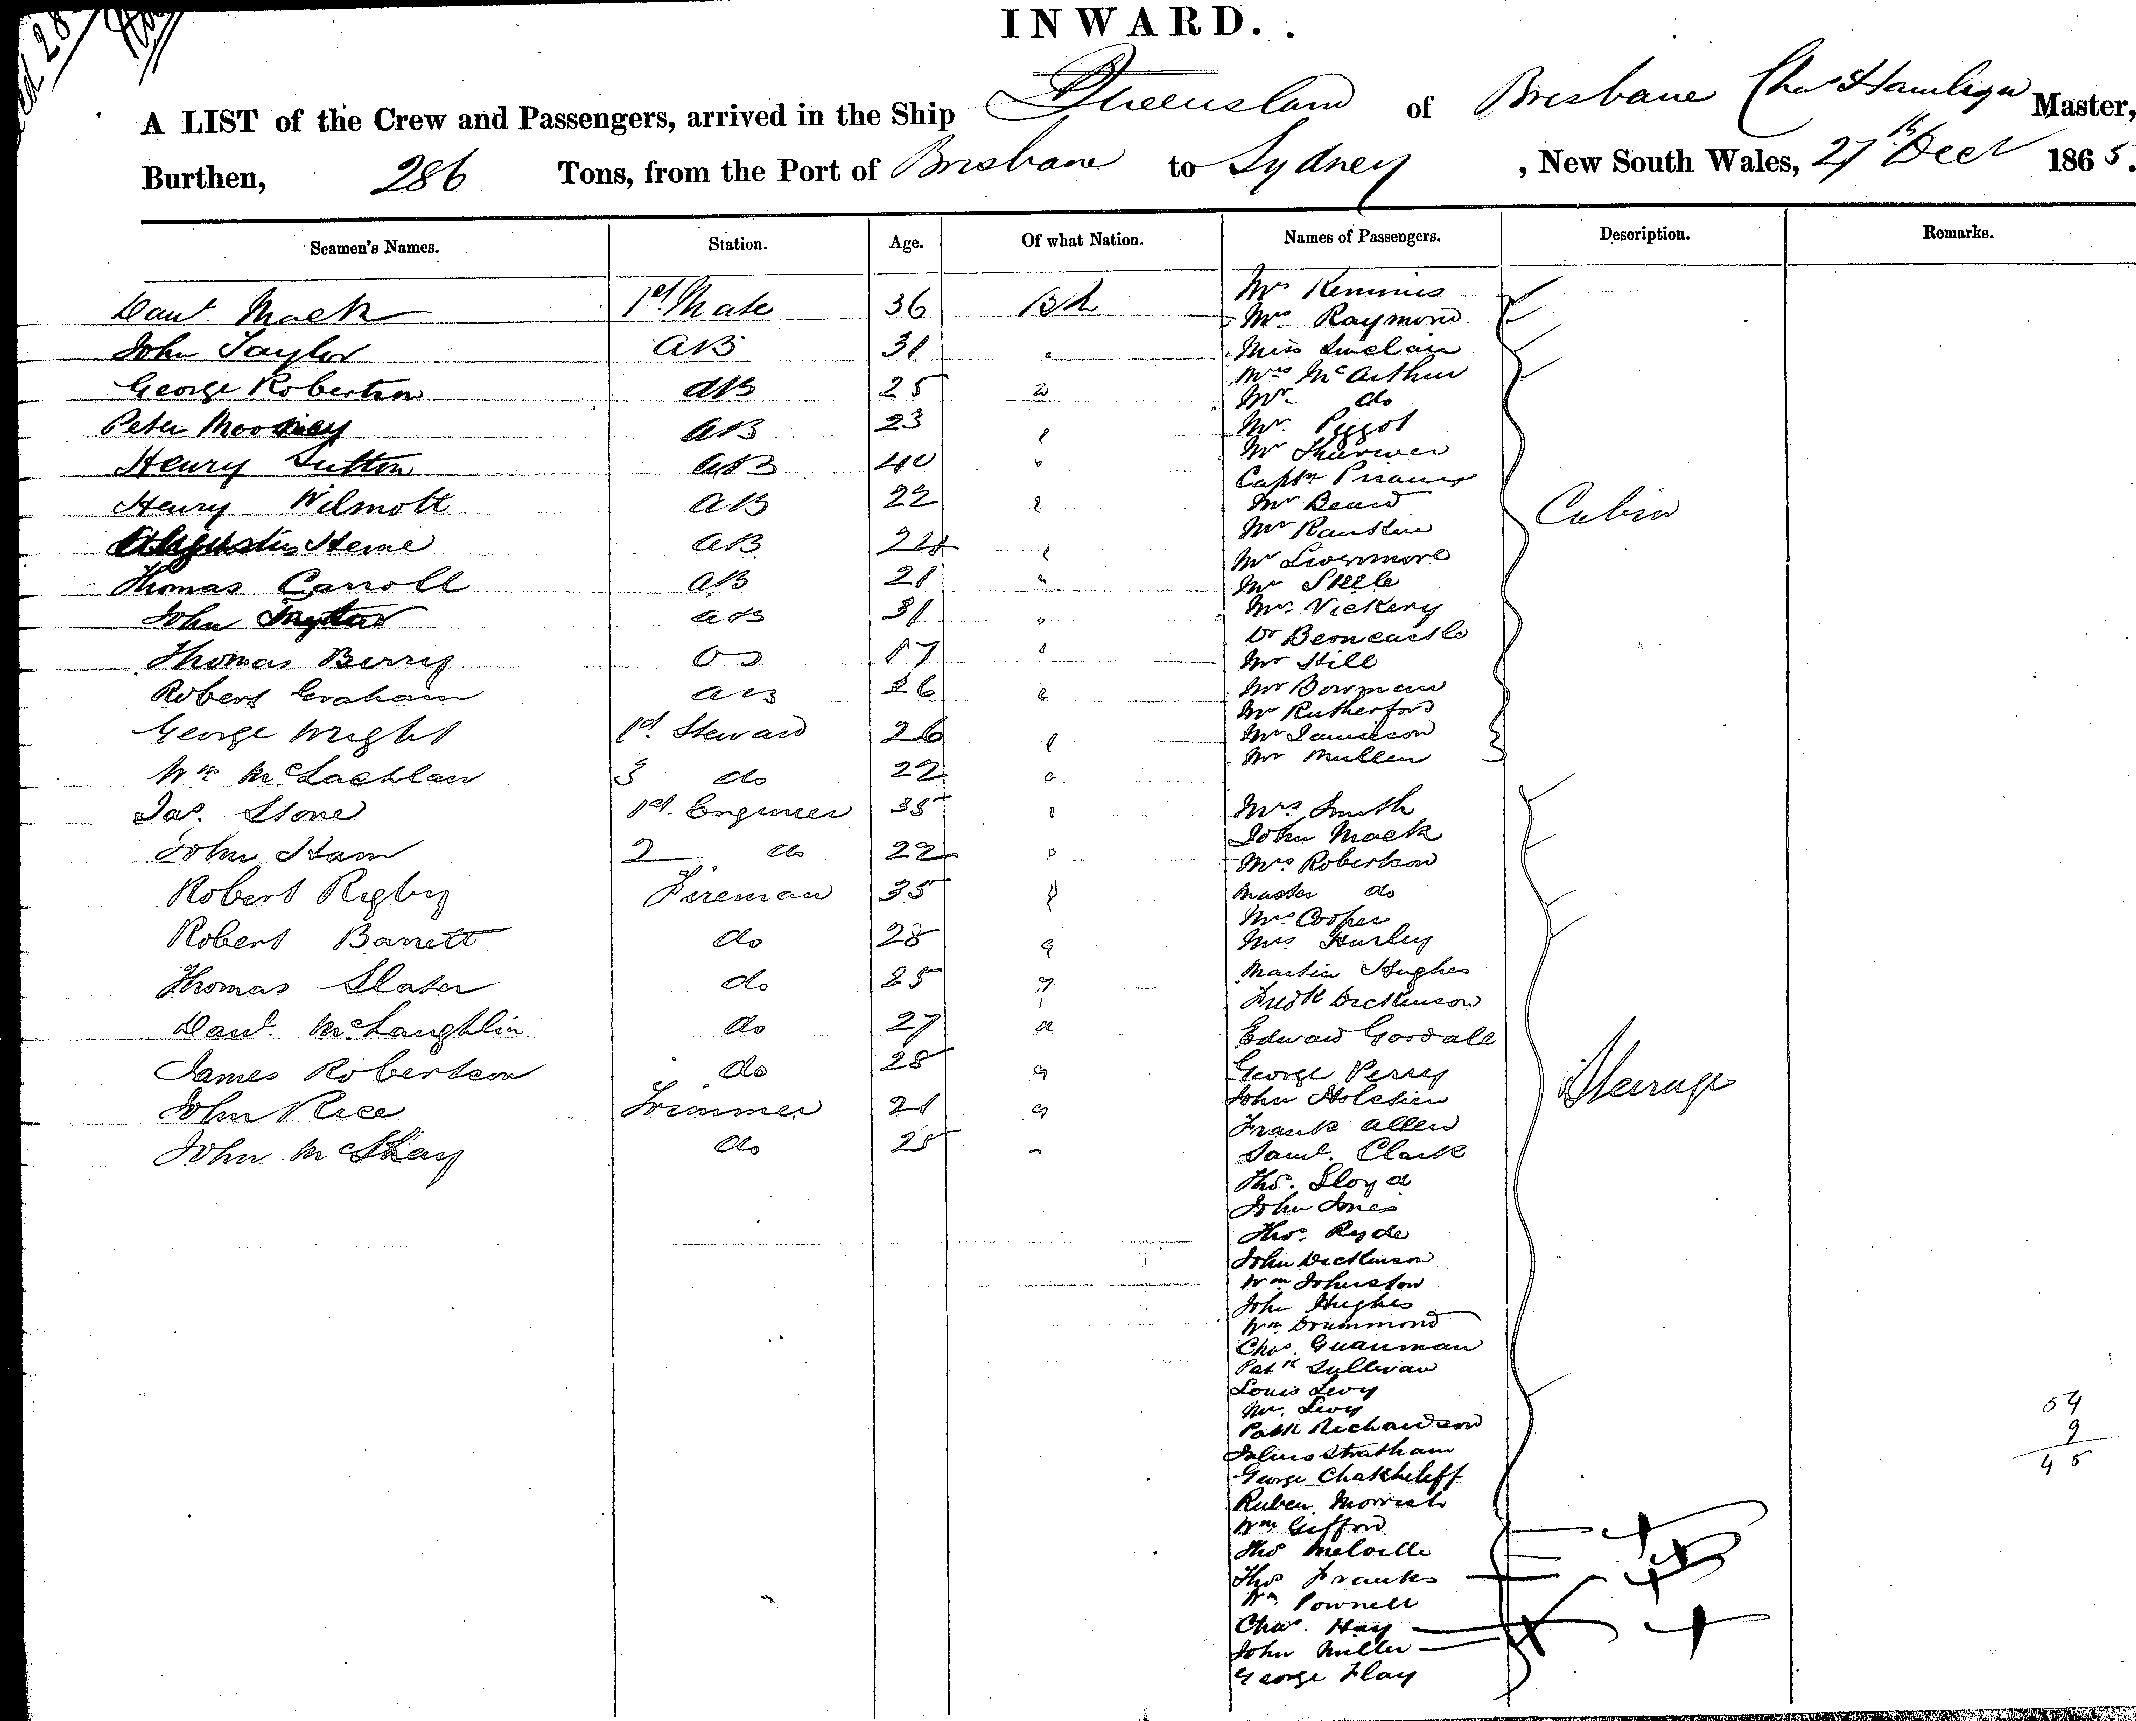 INWARD.
A LIST of the Crew and Passengers, arrived in the Ship Queensland of Brisbane Chas Hamlyn Master,
Burthen, 286 Tons, from the Port of Brisbane to Sydney, New South Wales, 27th Decr 1865.
Seamen's Names. Station. Age. Of what Nation. Names of Passengers. Description. Remarks.
Danl Mack 1st Mate 36 Bh
John Taylor AB 31
George Robertson AB 25
Peter Mooney AB 23
Henry Sutton AB 40
Henry Wilmott AB 22
Augustus Herne AB 24
Thomas Carroll AB 21
John Taylor AB 31
Thomas Berry OS 17
Robert Graham AB 26
George Wright 1st Steward 26
Wm McLachlan 3 do 22
Jas. Stone 1st Engineer 35
John Ham 2 do 22
Robert Rigby Fireman 35
Robert Barrett do 28
Thomas Slater do 25
Danl. McLaughlin do 27
James Robertson do 28
John Rice Trimmer 21
John McShay do 25
Mrs Kemmis
Mrs Raymond
Miss Sinclair
Mrs McArthur
Mr do
Mr. Piggot
Mr
Captn
Mr Beard
Mr Rankin
Mr Livermore
Mr Steele
Mr. Vickery
Dr Berncastle
Mr Hill
Mr Bowman
Mr Rutherford
Mr Jamieson
Mr Mullen
Cabin
Mrs Smith
John Mack
Mrs Robertson
Master do
Mrs Cooper
Mrs Hurley
Martin Hughes
Fredk Dickinson
Edward Goodall
George Perry
John Holstein
Frank Allen
Saml. Clark
Thos. Lloyd
John Jones
Thos. Ryde
John Dickinson
Wm Johnston
John Hughes
Wm Drummond
Chas. Guanman
Patk Sullivan
Louis Levy
Mr. Levy
Patk Richardson
Julius Stratham
George
Ruben Morrish
Wm Gifford
Thos Melville
Thos Franks
Wm Pownell
Chas. Hay
John Miller
George Hay
Steerage
54
9
45